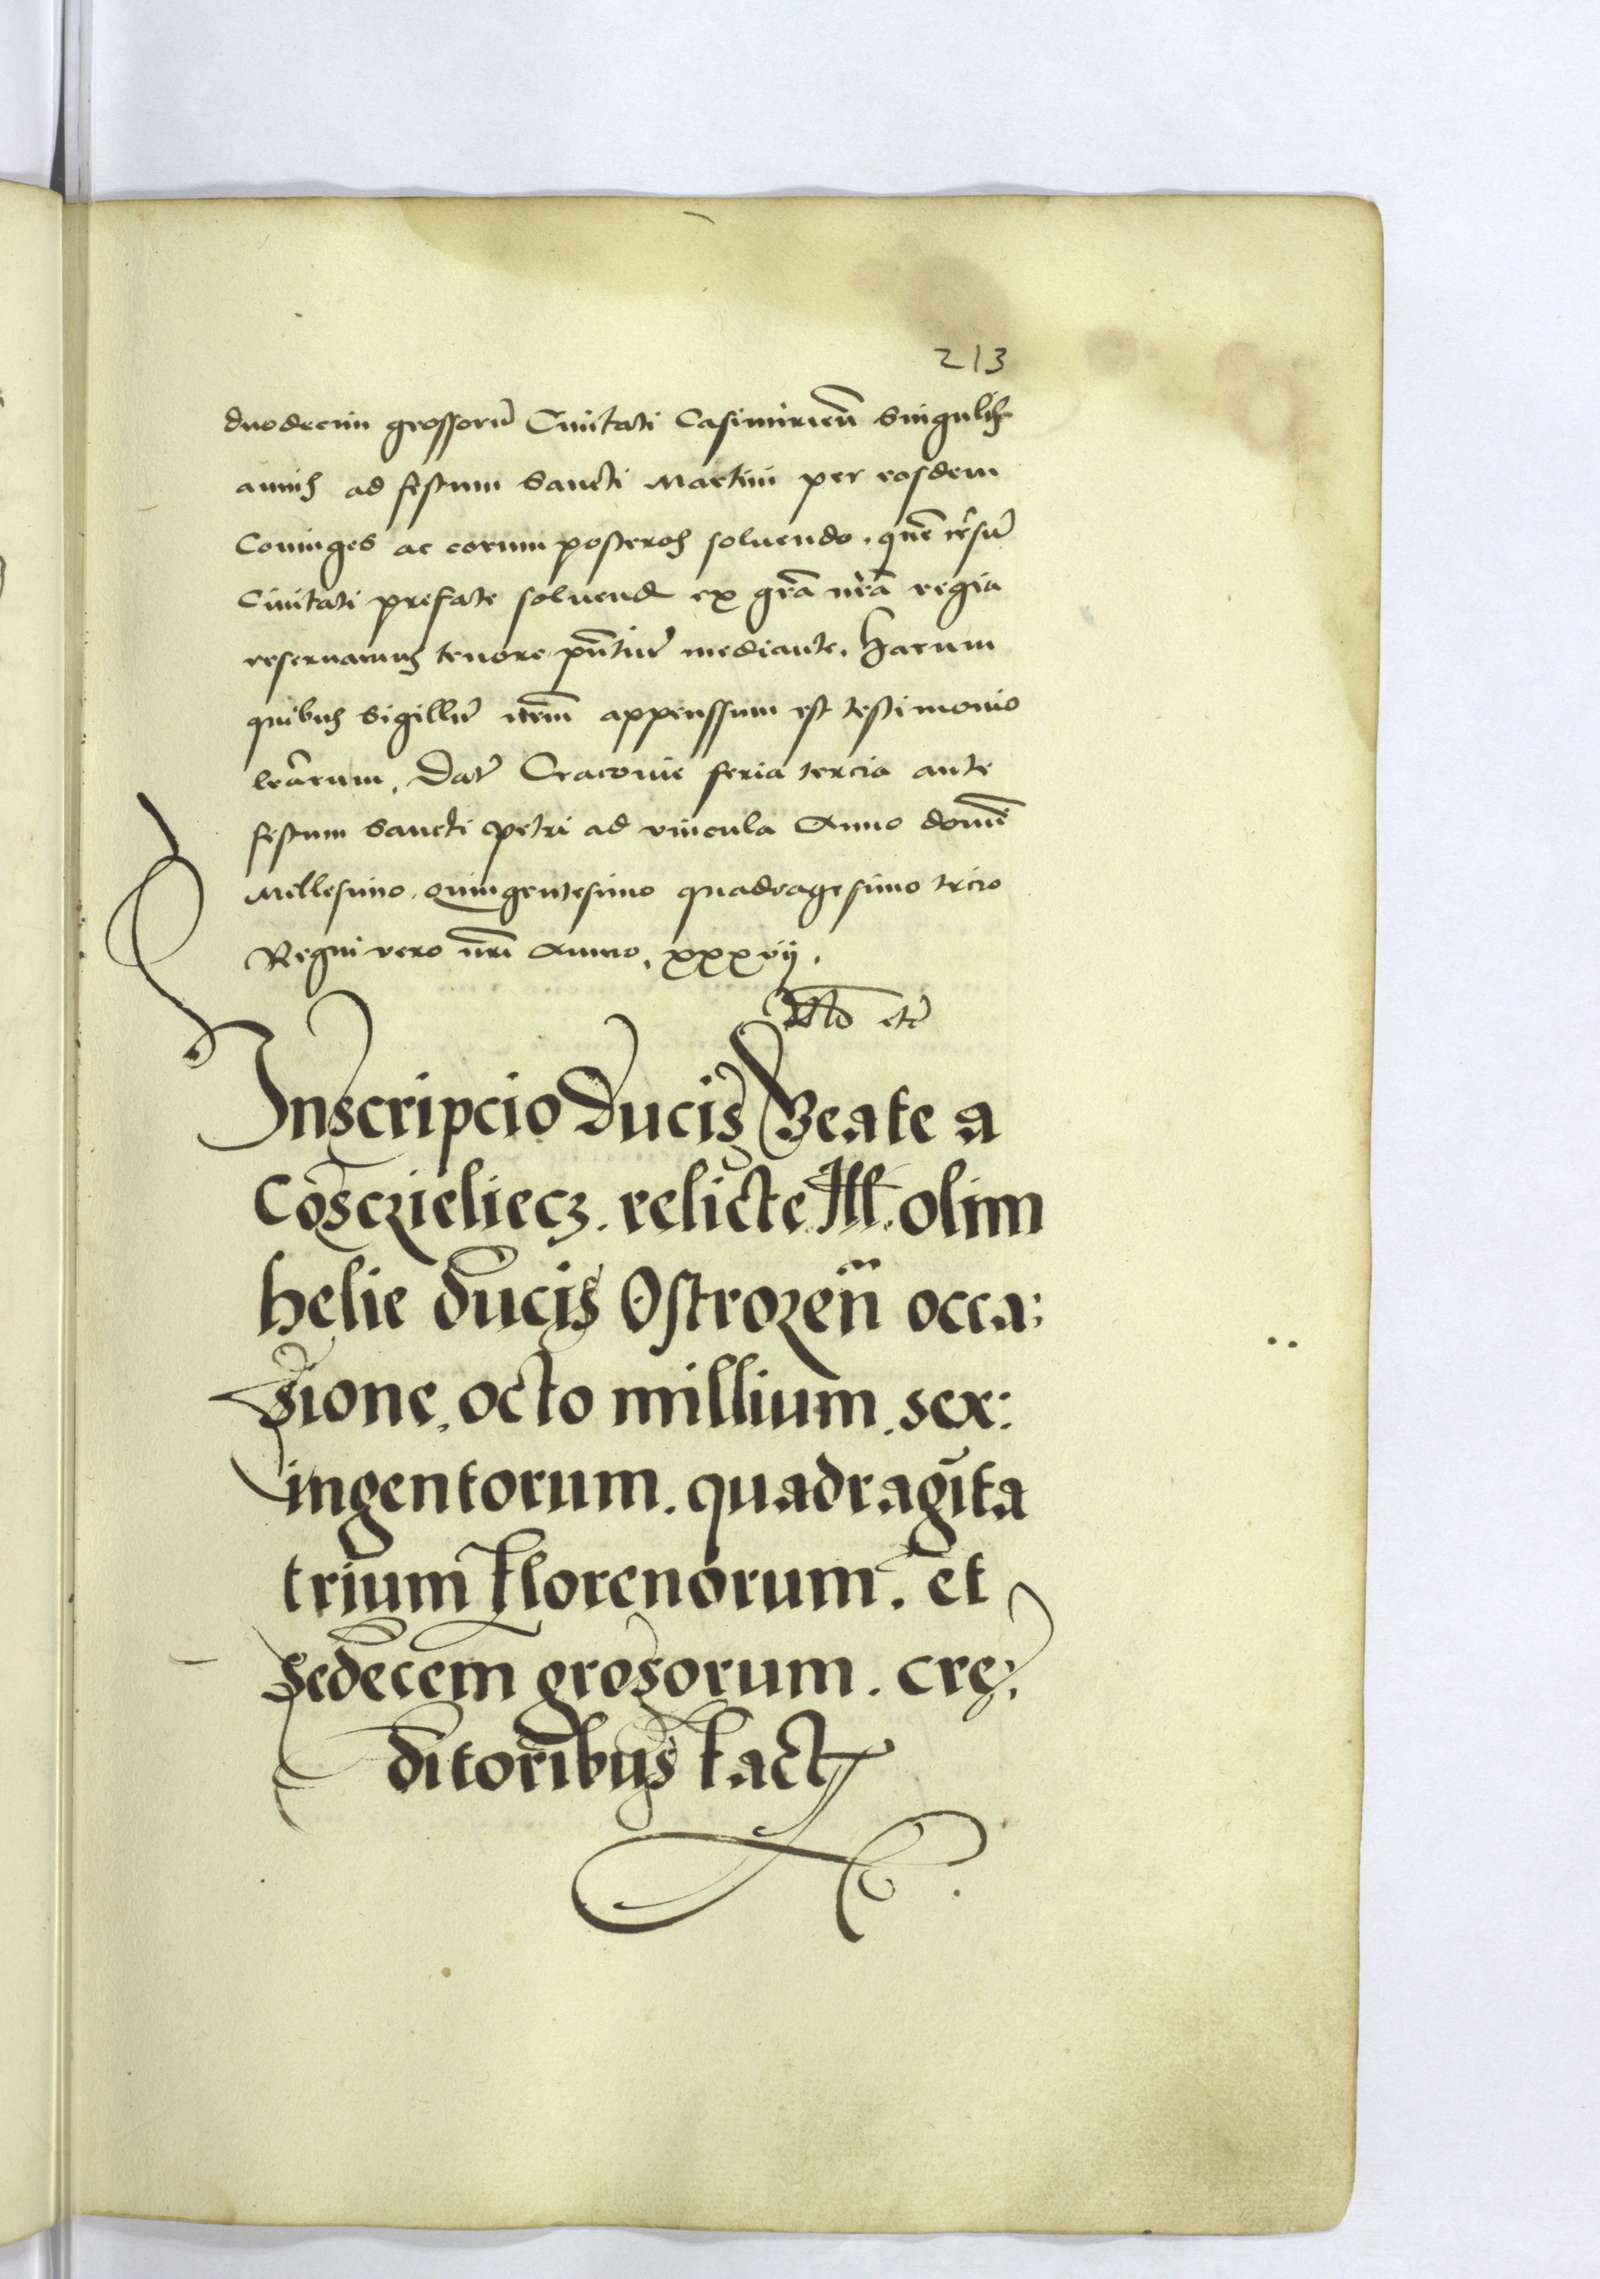 213
duodecim grossorū Ciuitati Casimirieñ singulis
annis ad festum Sancti Martini per eosdem
Coniuges ac eorum posteros soluendo. quē cēsū
Ciuitati prefate soluend ex grā nrā regia
reseruamus tenore pñtiū mediante. Harum
quibus Sigillū nrm̄ appenssum est testimonio
lrārum. Dat̄ Cracouie feria tercia ante
festum Sancti Petri ad vincula Anno domī
Millesimo. Quingentesimo quadragesimo trcio
Regni vero nrī Anno. xxxvij.
etc̄
Inscripcio Ducis Beate a
Cosczieliecz. relicte Ill. olim
helie ducis Ostrozeñ occa:
sione. octo millium. sex:
ingentorum. quadragīta
trium florenorum. et
sedecem grosorum. cre:
ditoribus fact